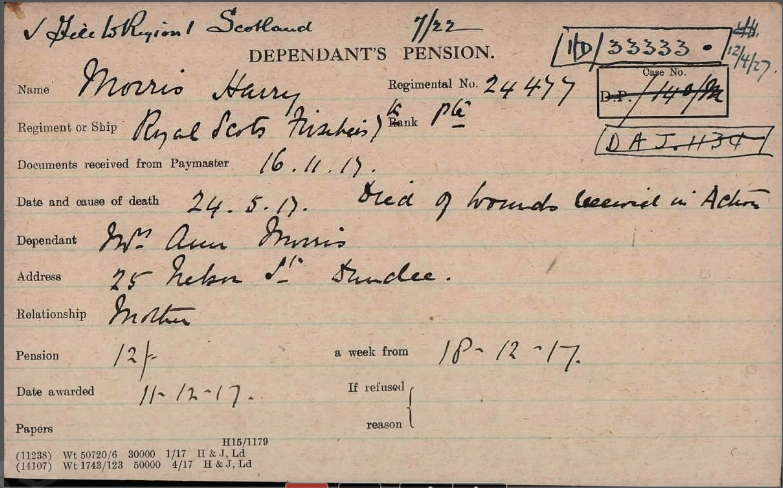 ✓ File to Region 1 Scotland 7/22
DEPENDANT'S PENSION.
HD/33333.
12/4/27.
Name Morris Harry Regimental No. 24477
Case No.
D.P./140/M
Regiment or Ship Royal Scots Fusiliers Rank Pte
D A J. 1134
Documents received from Paymaster 16.11.17.
Date and cause of death 24.5.17. Died of wounds received in Action
Dependant Mrs Ann Morris
Address 25 Nelson St Dundee.
Relationship Mother
Pension 12/- a week from 18-12-17.
Date awarded 11-12-17. If refused
reason
Papers
H15/1179
(11238) Wt 50720/6 30000 1/17 H & J, Ld
(14107) Wt 1743/123 50000 4/17 H & J, Ld